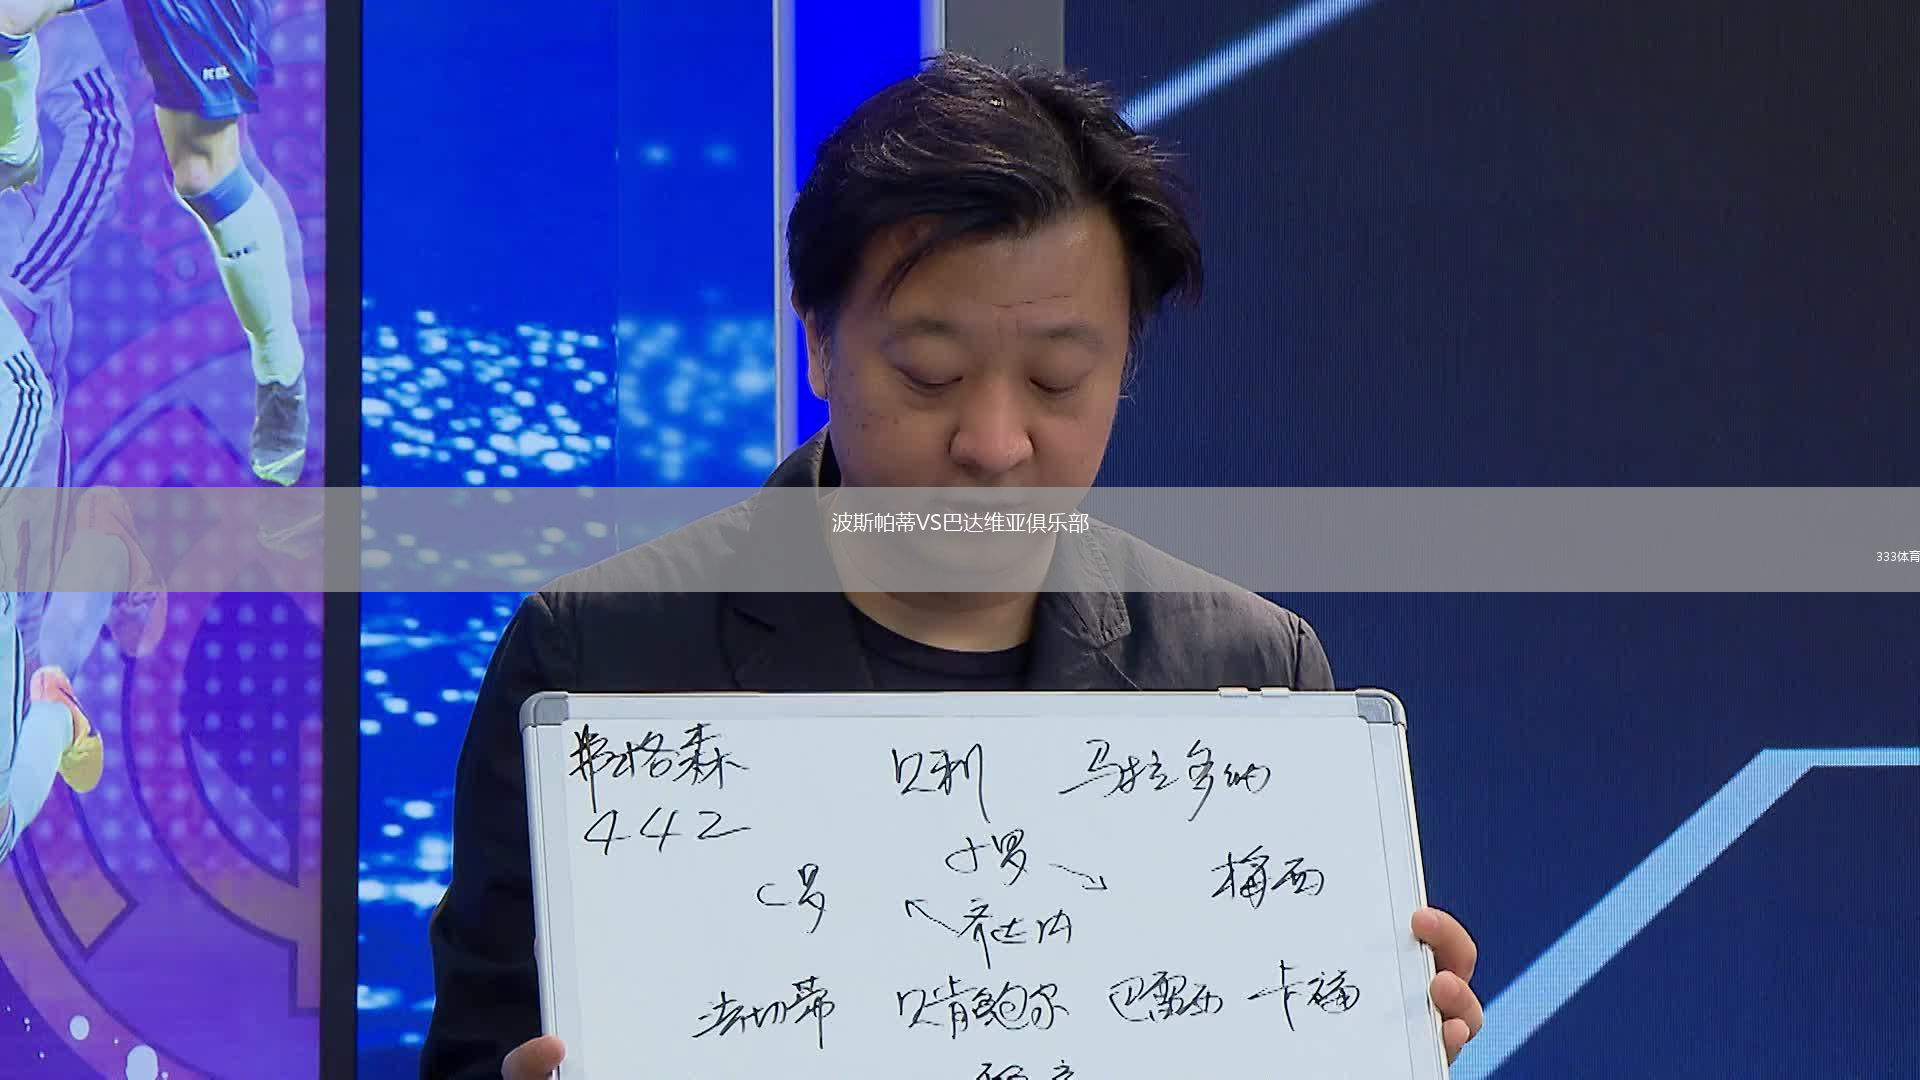 波斯帕蒂VS巴达维亚俱乐部
333体育
弗格森 贝利 马拉多纳
442
小罗
C罗 梅西
齐达内
法切蒂 贝肯鲍尔 巴雷西 卡福